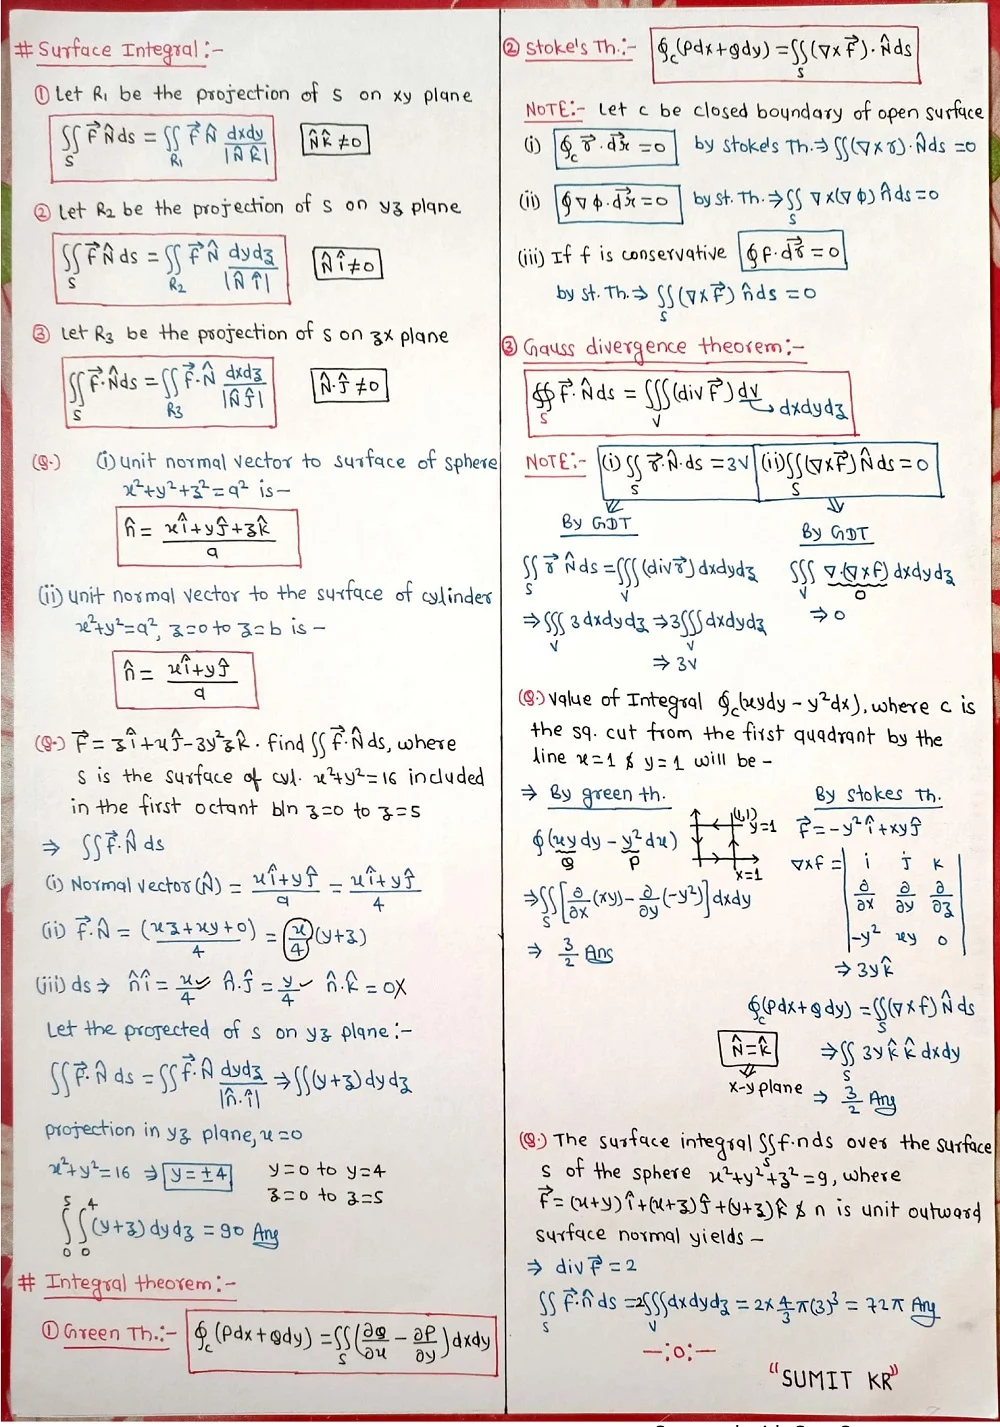 # Surface Integral :-
① Let R₁ be the projection of s on xy plane
∬_S F⃗ N̂ ds = ∬_R₁ F⃗ N̂ dxdy/|N̂ k̂|   N̂k̂ ≠ 0
② Let R₂ be the projection of s on yz plane
∬_S F⃗ N̂ ds = ∬_R₂ F⃗ N̂ dydz/|N̂ î|   N̂ î ≠ 0
③ Let R₃ be the projection of s on zx plane
∬_S F⃗·N̂ ds = ∬_R₃ F⃗·N̂ dxdz/|N̂ ĵ|   N̂·ĵ ≠ 0
(Q.) (i) unit normal vector to surface of sphere
x²+y²+z²=a² is –
n̂ = (xî+yĵ+zk̂)/a
(ii) unit normal vector to the surface of cylinder
x²+y²=a², z=0 to z=b is –
n̂ = (xî+yĵ)/a
(Q.) F⃗ = zî+xĵ-3y²zk̂. find ∬F⃗·N̂ ds, where
s is the surface of cyl. x²+y²=16 included
in the first octant b/n z=0 to z=5
⇒ ∬F⃗·N̂ ds
(i) Normal vector (N̂) = (xî+yĵ)/a = (xî+yĵ)/4
(ii) F⃗·N̂ = (xz+xy+0)/4 = (x/4)(y+z)
(iii) ds ⇒ n̂î = x/4 ✓ n̂·ĵ = y/4 ✓ n̂·k̂ = 0 X
Let the projected of s on yz plane :-
∬F⃗·N̂ ds = ∬F⃗·N̂ dydz/|n̂·î| ⇒ ∬(y+z)dydz
projection in yz plane, x=0
x²+y²=16 ⇒ y=±4   y=0 to y=4
z=0 to z=5
∫₀⁵∫₀⁴(y+z)dydz = 90 Ans
# Integral theorem :-
① Green Th. :- ∮_C (Pdx+Qdy) = ∬_S (∂Q/∂x − ∂P/∂y) dxdy
② Stoke's Th. :- ∮_C (Pdx+Qdy) = ∬_S (∇×F⃗)·N̂ ds
NOTE :- Let c be closed boundary of open surface
(i) ∮_C r⃗·dr⃗ = 0   by stoke's Th. ⇒ ∬(∇×r)·N̂ds = 0
(ii) ∮∇φ·dr⃗ = 0   by st. Th. ⇒ ∬_S ∇×(∇φ) n̂ds = 0
(iii) If f is conservative ∮F·dr⃗ = 0
by st. Th. ⇒ ∬_S (∇×F⃗) n̂ds = 0
③ Gauss divergence theorem :-
∯_S F⃗·N̂ds = ∭_V (div F⃗) dv → dxdydz
NOTE :- (i) ∬_S r⃗·N̂·ds = 3V   (ii) ∬_S (∇×F⃗) N̂ds = 0
By GDT   By GDT
∬_S r⃗ N̂ds = ∭_V (div r⃗) dxdydz   ∭_V ∇·(∇×f) dxdydz
0
⇒ ∭_V 3dxdydz ⇒ 3∭_V dxdydz   ⇒ 0
⇒ 3V
(Q.) Value of Integral ∮_C (xydy − y²dx), where c is
the sq. cut from the first quadrant by the
line x=1 & y=1 will be –
⇒ By green th.   By stokes Th.
∮(xydy − y²dx)   (1,1) y=1   F⃗ = -y²î+xyĵ
Q   P   x=1
∇×f = | i j k |
| ∂/∂x ∂/∂y ∂/∂z |
| -y² xy 0 |
⇒ ∬_S [∂/∂x (xy) − ∂/∂y (-y²)] dxdy
⇒ 3/2 Ans
⇒ 3yk̂
∮_C (Pdx+Qdy) = ∬_S (∇×f) N̂ds
N̂=k̂   ⇒ ∬_S 3y k̂ k̂ dxdy
x-y plane   ⇒ 3/2 Ans
(Q.) The surface integral ∬_S f·n ds over the surface
s of the sphere x²+y²+z²=9, where
F⃗ = (x+y)î+(x+z)ĵ+(y+z)k̂ & n is unit outward
surface normal yields –
⇒ div F⃗ = 2
∬_S F⃗·n̂ ds = 2∭_V dxdydz = 2×4/3 π(3)³ = 72π Ans
—:0:—
"SUMIT KR"